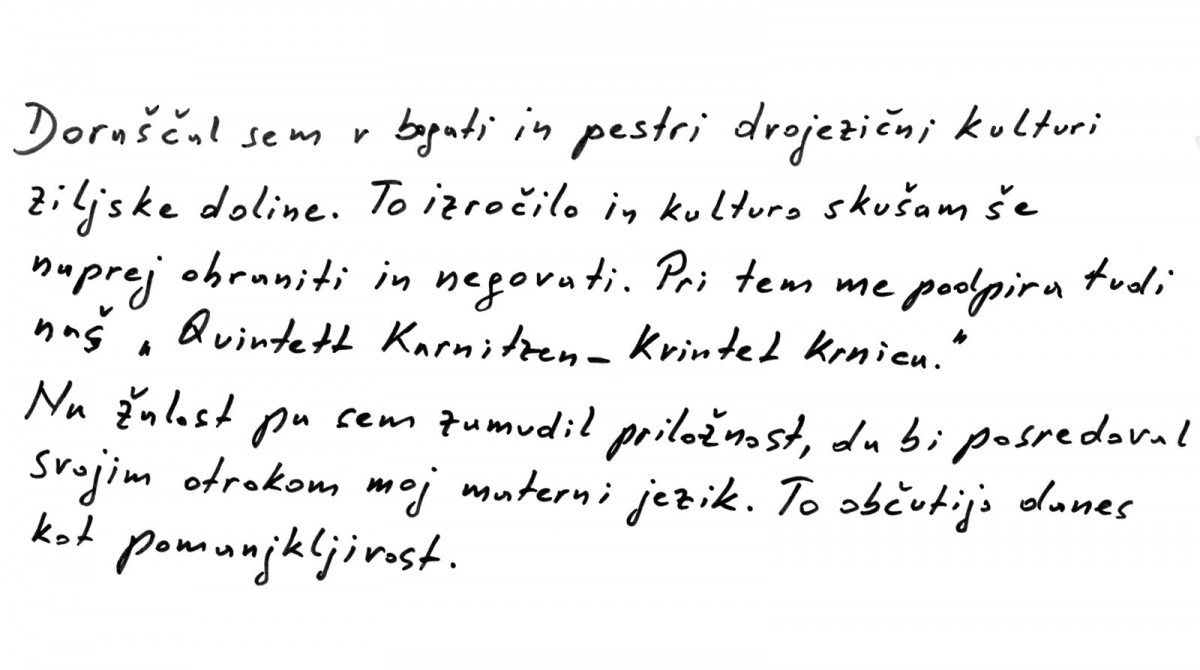 Doraščal sem v bogati in pestri dvojezični kulturi
ziljske doline. To izročilo in kulturo skušam še
naprej ohraniti in negovati. Pri tem me podpira tudi
naš „Quintett Karnitzen – Kvintet Krnica.“
Na žalost pa sem zamudil priložnost, da bi posredoval
svojim otrokom moj materni jezik. To občutijo danes
kot pomanjkljivost.